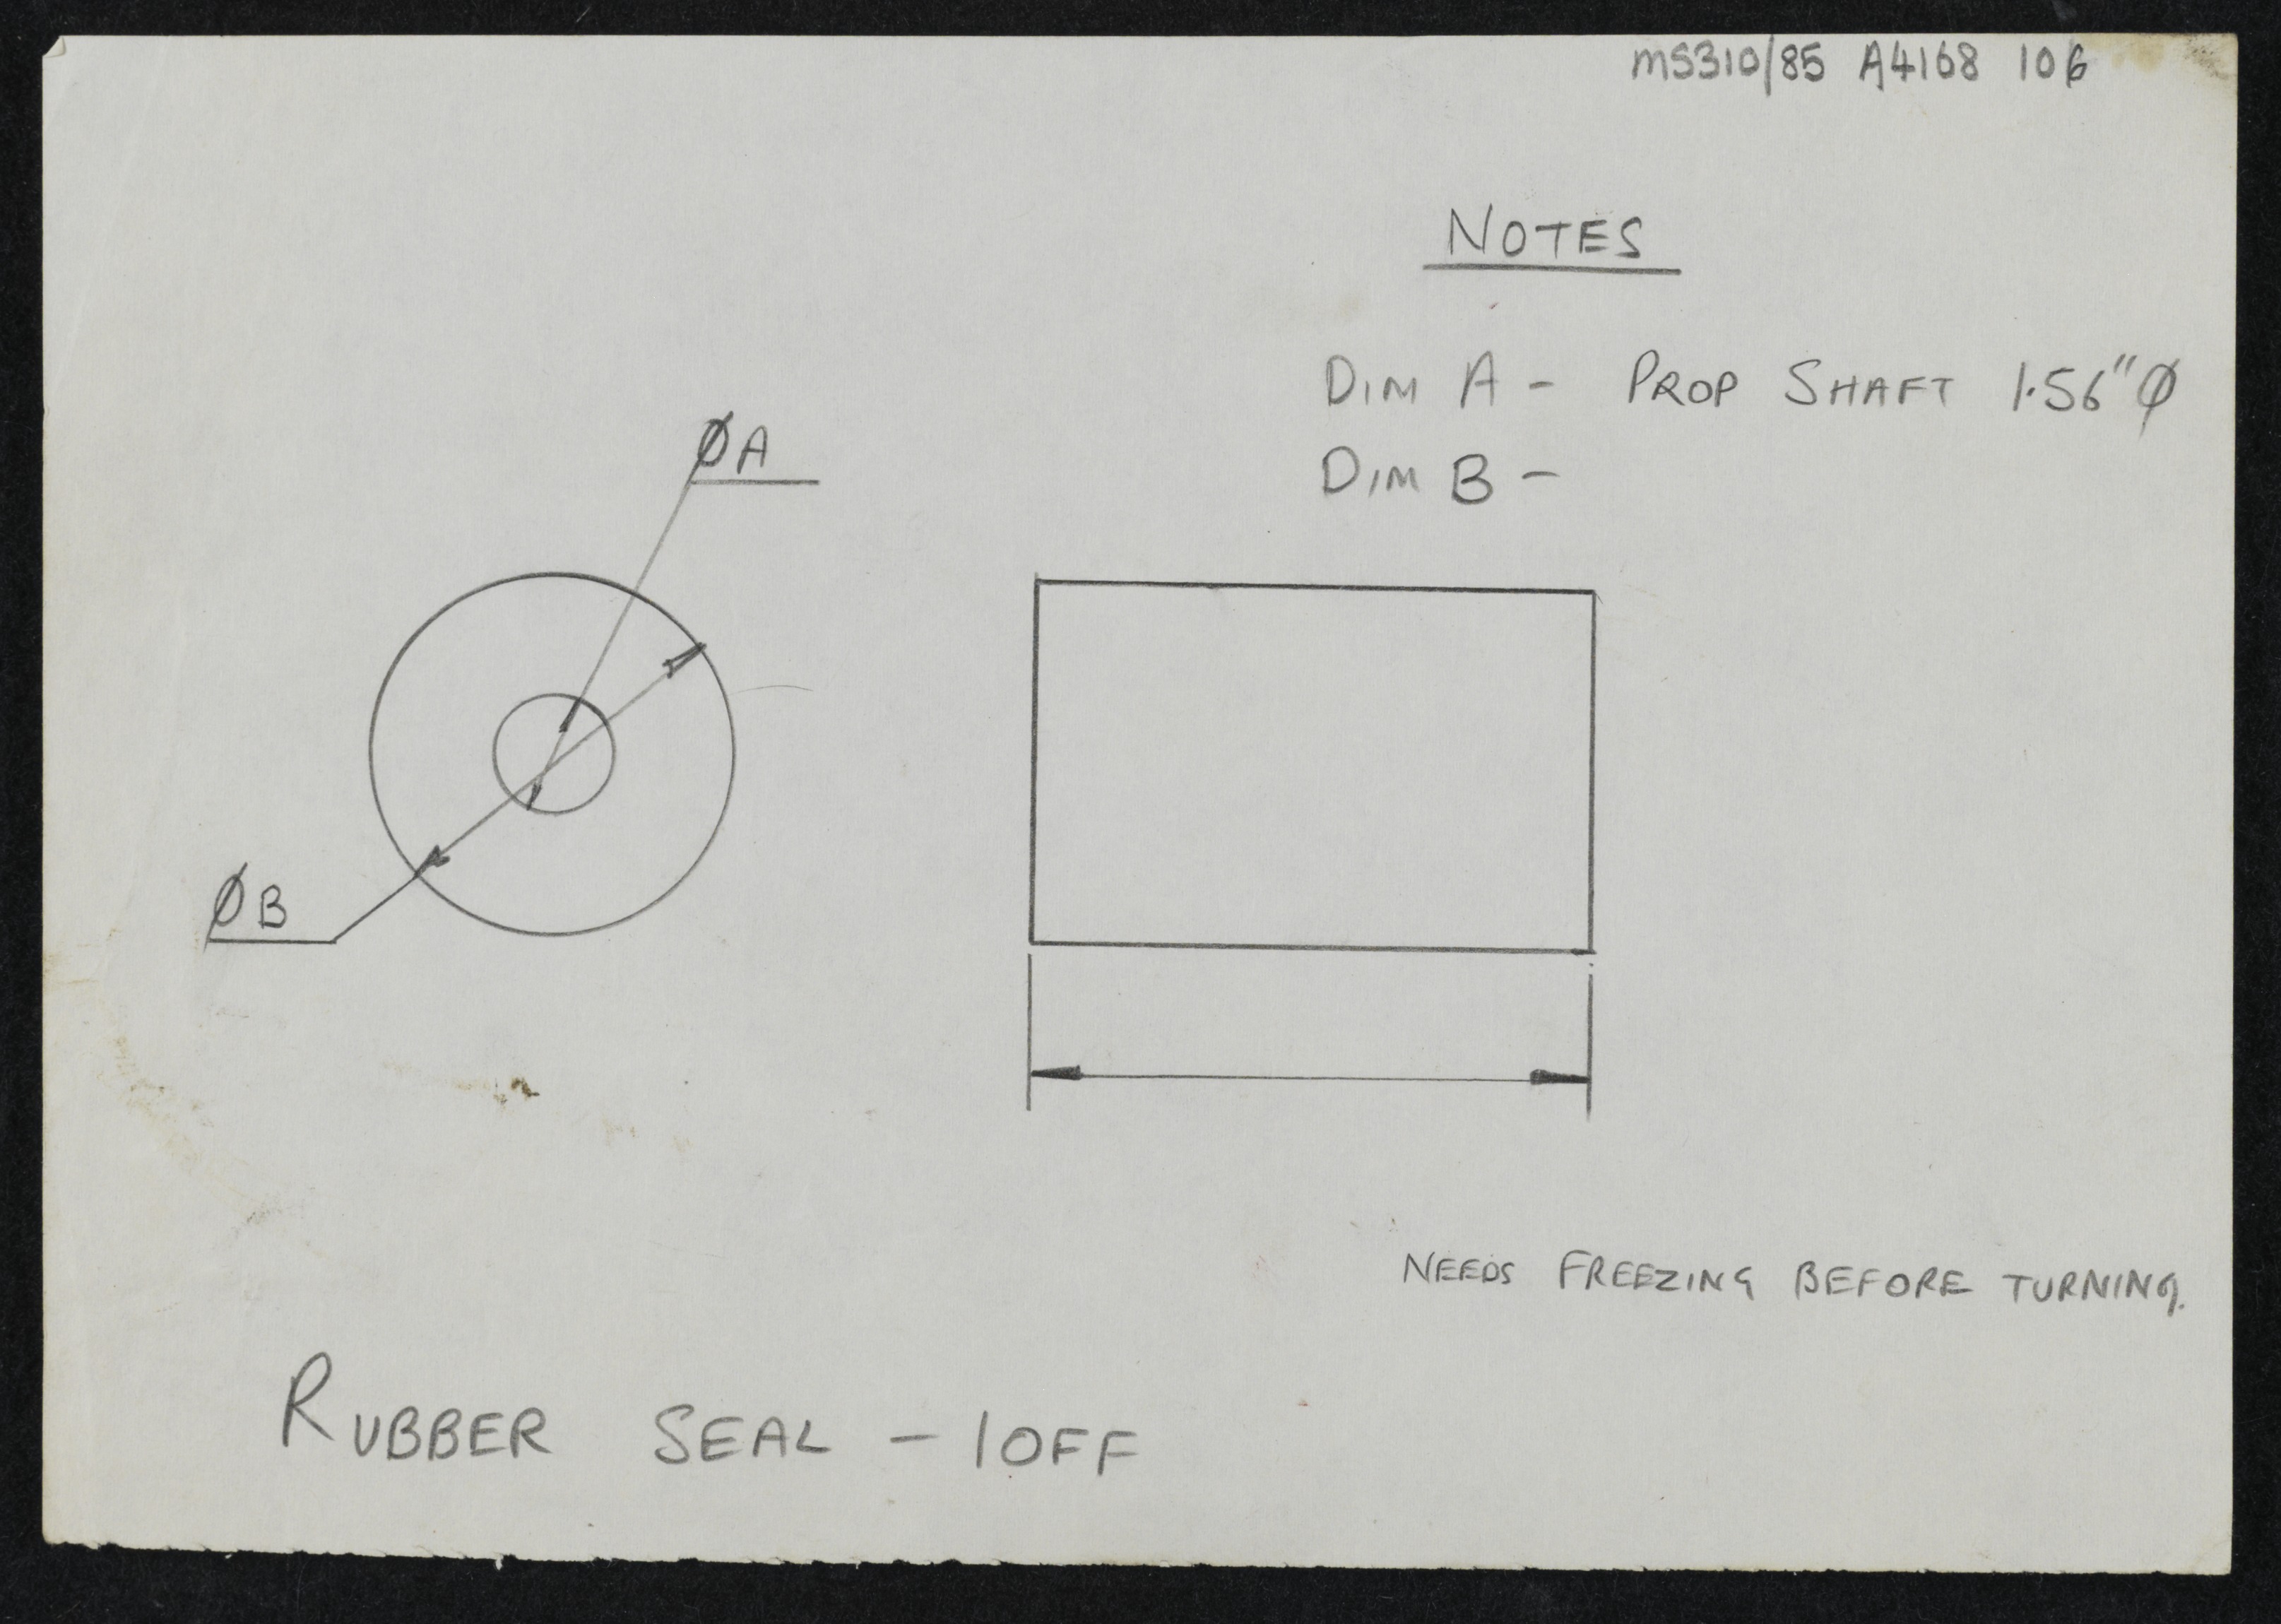 MS310/85 A4168 106
NOTES
DIM A - PROP SHAFT 1.56"Ø
DIM B -
ØA
ØB
NEEDS FREEZING BEFORE TURNING.
RUBBER SEAL - 1 OFF